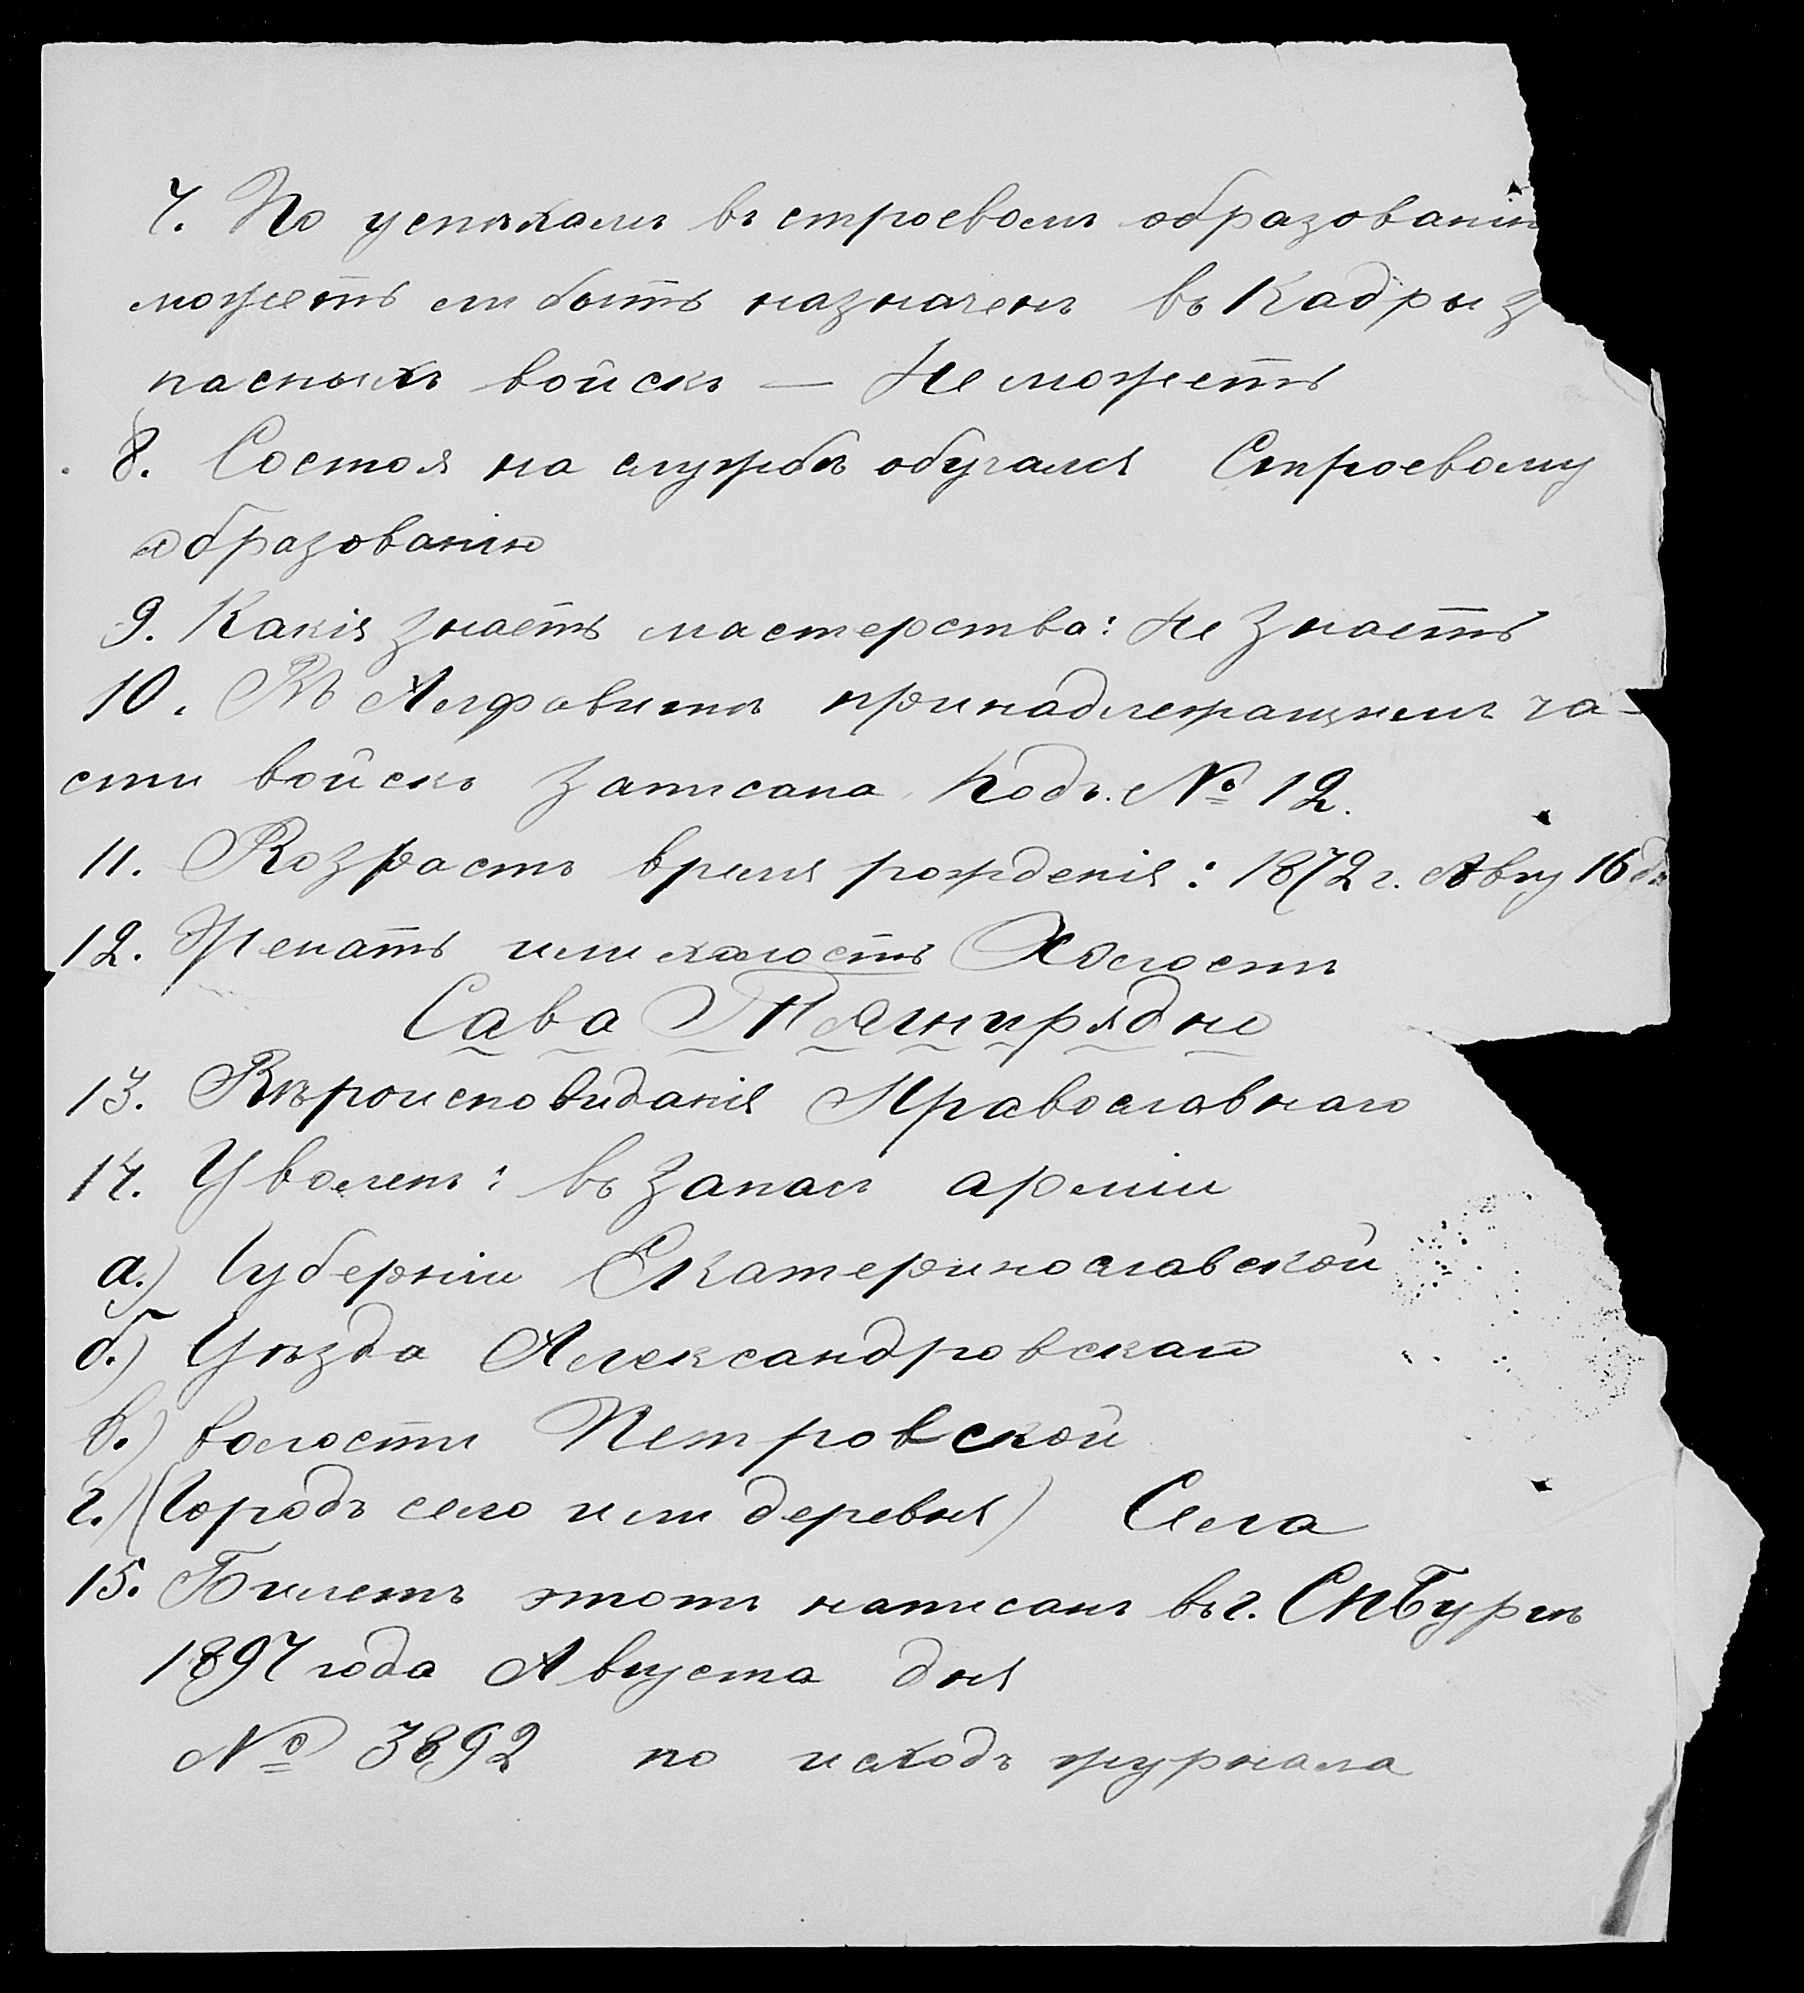 7. По успѣхамъ въ строевомъ образованіи
можетъ ли быть назначенъ въ Кадры з
пасныхъ войскъ — Не можетъ
8. Состоя на службѣ обучался Строевому
образованію
9. Какія знаетъ мастерства: Не Знаетъ
10. Въ Алфавитѣ принадлежащимъ ча-
сти войскъ Записана Подъ № 12.
11. Возрастъ время рожденія: 1872 г. Авгу 16 дн
12. Женатъ или холостъ Холостъ
Сава
13. Вѣроисповиданія Православнаго
14. Уволенъ: въ Запасъ арміи
а.) Губерніи Екатеринославской
б.) Уѣзда Александровскаго
в.) волости Петровской
г.) (Городъ село или деревня) Села
15. Билетъ этотъ написанъ въ г. СПБургѣ
1897 года Августа дня
№ 3892 по исход журнала